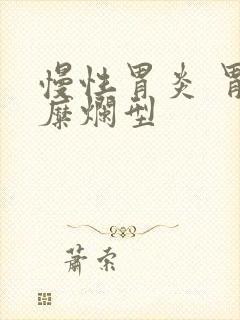 慢性胃炎 胃
糜爛型
蕭索